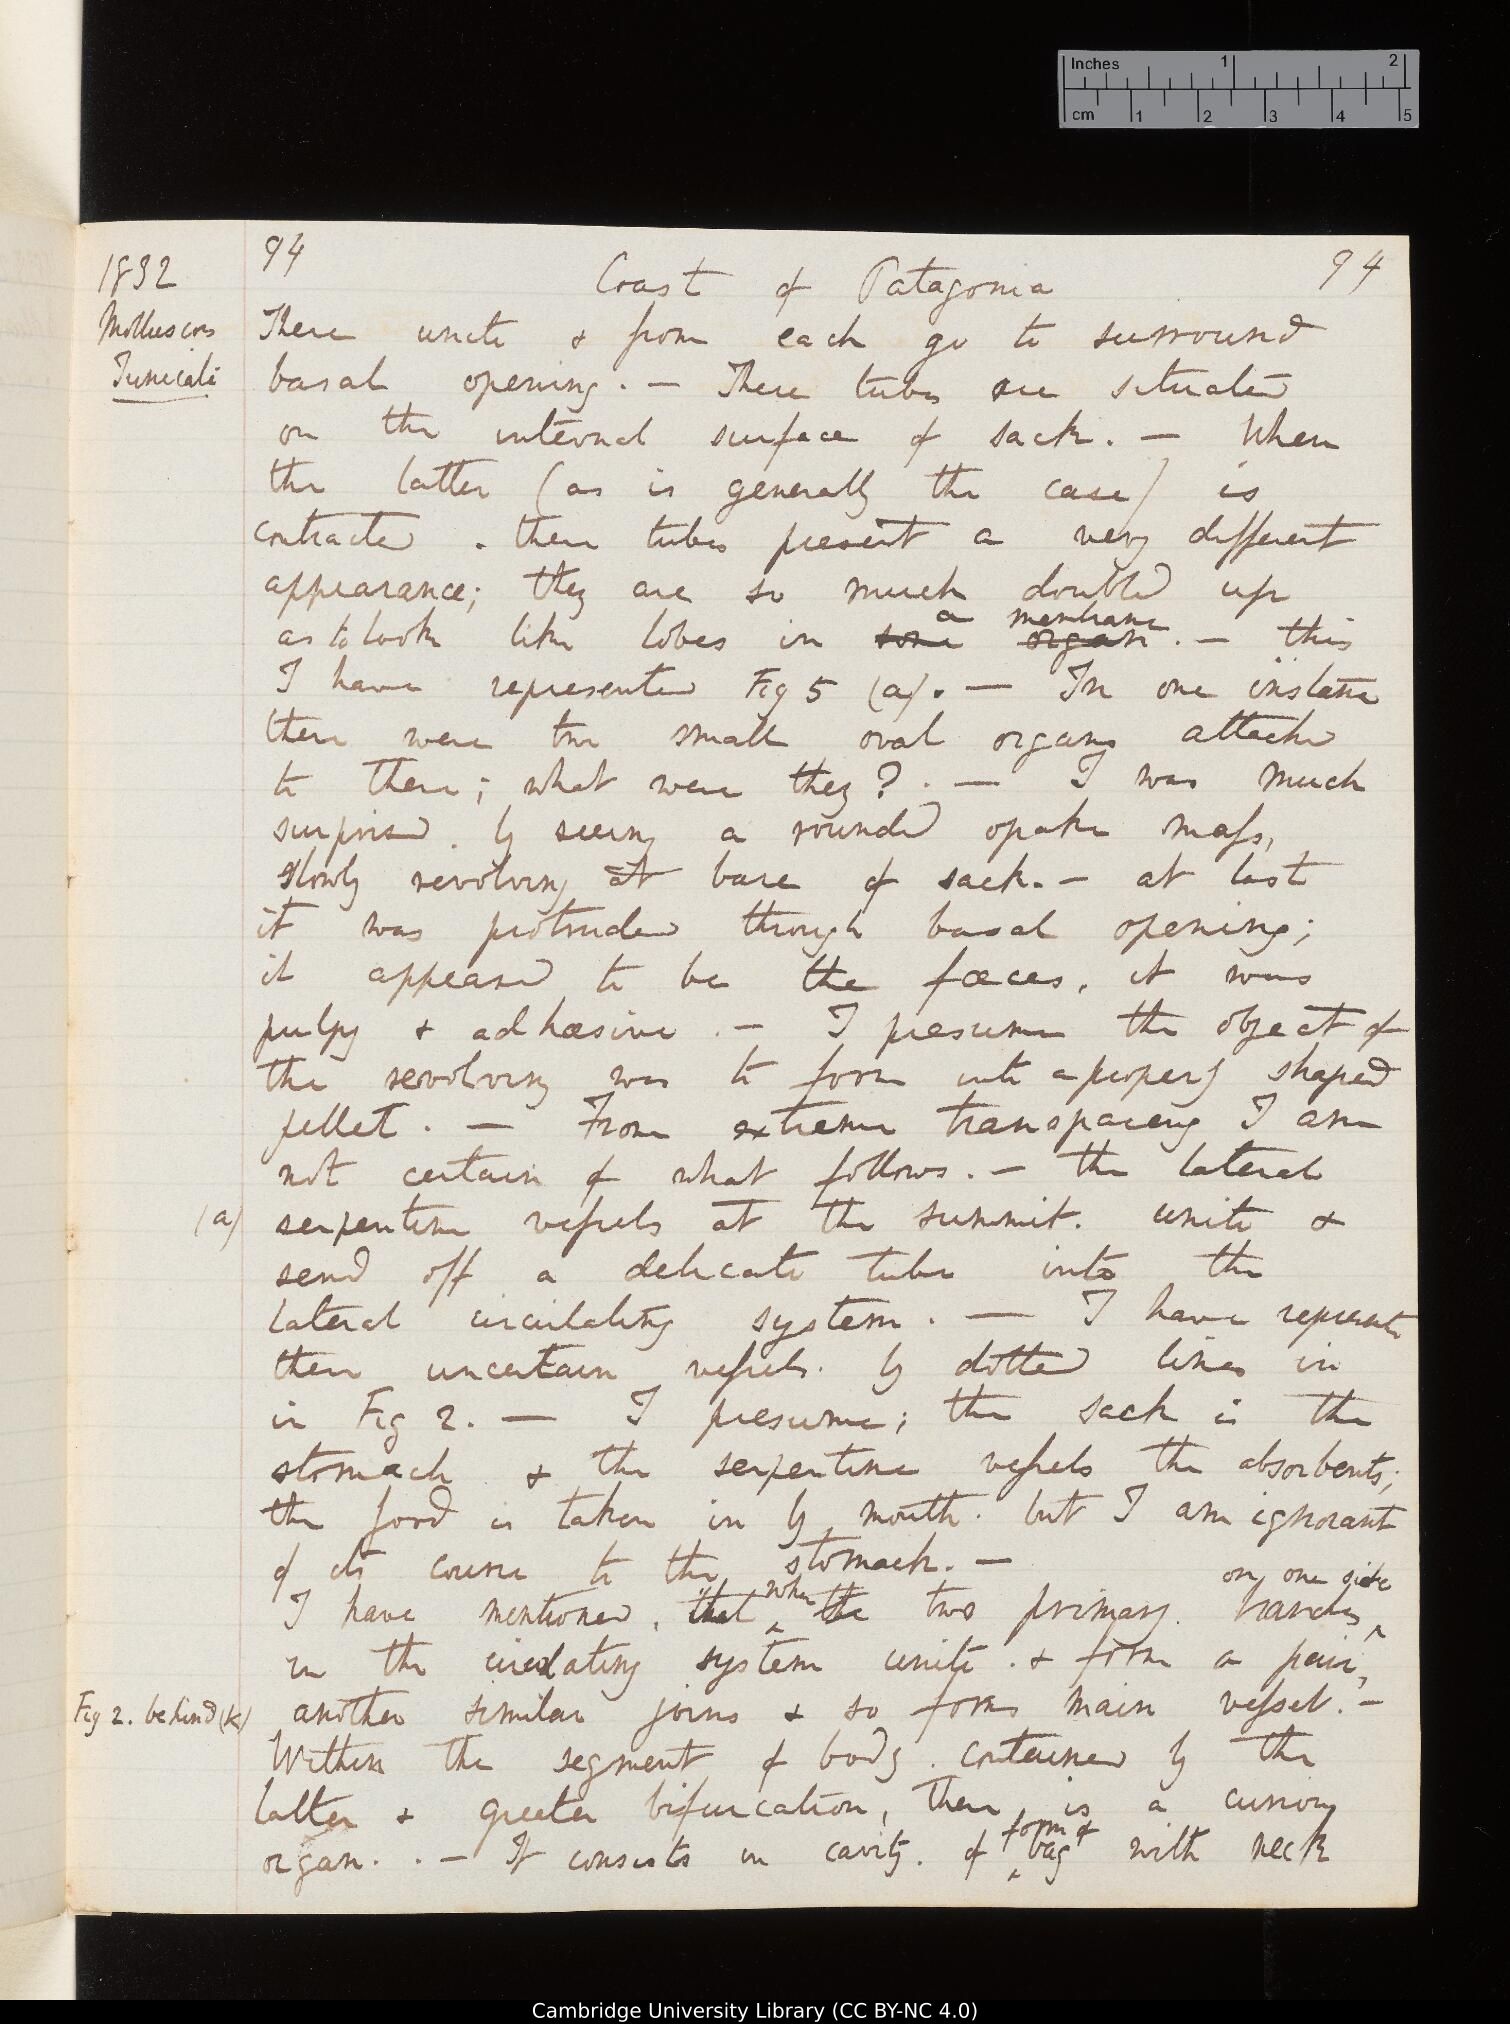 Inches 1 2
cm 1 2 3 4 5
94 94
1832 Coast of Patagonia
Molluscous
Tunicati
These unite & from each go to surround
basal opening. — These tubes are situated
on the internal surface of sack. — When
the latter (as is generally the case) is
contracted . these tubes present a very different
appearance; they are so much doubled up
as to look like lobes in some organ a membrane . — this
I have represented Fig 5 (a). — In one instance
there were two small oval organs attached
to them; what were they? . — I was much
surprised . by seeing a rounded opake mass,
slowly revolving at base of sack. — at last
it was protruded through basal opening;
it appeared to be the fæces, it was
pulpy & adhæsive . — I presume the object of
the revolving was to form into a properly shaped
pellet . — From extreme transparency I am
not certain of what follows. — the lateral
(a) serpentine vessels at the summit. unite &
send off a delicate tube into the
lateral circulating system . — I have represented
these uncertain vessels. by dotted lines in
in Fig 2. — I presume; the sack is the
stomach & the serpentine vessels the absorbents;
the food is taken in by mouth. but I am ignorant
of its course to the stomach. —
I have mentioned, that when the two primary. branches on one side
in the circulating system unite . & form a pair,
Fig 2. behind (K) another similar joins & so forms main vessel. —
Within the segment of body . contained by the
latter & greater bifurcation, there is a curious
organ. . — It consists in cavity. of form of bag with neck
Cambridge University Library (CC BY-NC 4.0)